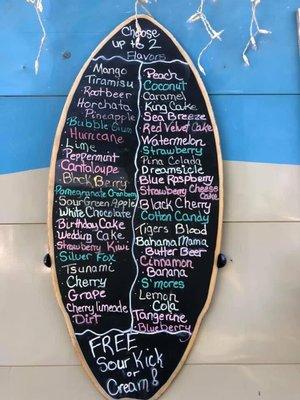 Choose
up to 2
Flavors
Mango
Tiramisu
Rootbeer
Horchata
Pineapple
Bubble Gum
Hurricane
Lime
Peppermint
Cantaloupe
Black Berry
Pomegranate Cranberry
Sour Green Apple
White Chocolate
Birthday Cake
Wedding Cake
Strawberry Kiwi
Silver Fox
Tsunami
Cherry
Grape
Cherry limeade
Dirt
Peach
Coconut
Caramel
King Cake
Sea Breeze
Red Velvet Cake
Watermelon
Strawberry
Pina Colada
Dreamsicle
Blue Raspberry
Strawberry Cheese Cake
Black Cherry
Cotton Candy
Tigers Blood
Bahama Mama
Butter Beer
Cinnamon
Banana
S'mores
Lemon
Cola
Tangerine
Blueberry
FREE
Sour Kick
or
Cream!